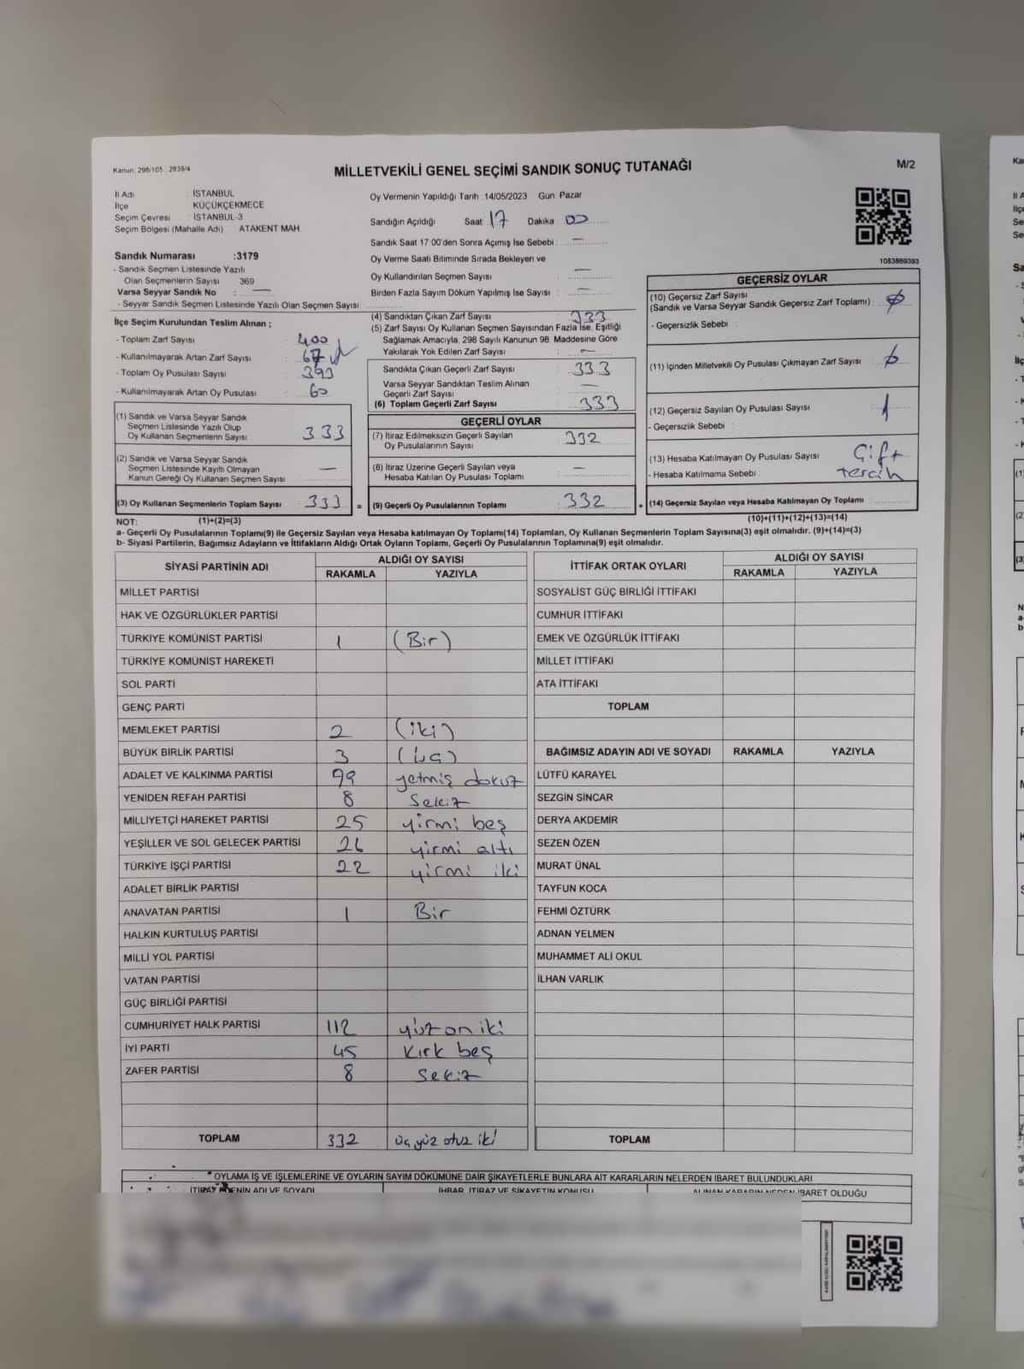 Kanun: 298/105 2839/4
MİLLETVEKİLİ GENEL SEÇİMİ SANDIK SONUÇ TUTANAĞI
M/2
İl Adı : İSTANBUL
İlçe KÜÇÜKÇEKMECE
Seçim Çevresi : İSTANBUL-3
Seçim Bölgesi (Mahalle Adı) ATAKENT MAH.
Oy Vermenin Yapıldığı Tarih 14/05/2023 Gün: Pazar
Sandığın Açıldığı Saat 17 Dakika 00
Sandık Saat 17 00'den Sonra Açımış İse Sebebi : —
Oy Verme Saati Bitiminde Sırada Bekleyen ve
Oy Kullandırılan Seçmen Sayısı : —
Birden Fazla Sayım Döküm Yapılmış İse Sayısı : —
1083869393
Sandık Numarası :3179
- Sandık Seçmen Listesinde Yazılı
Olan Seçmenlerin Sayısı : 369
Varsa Seyyar Sandık No : —
- Seyyar Sandık Seçmen Listesinde Yazılı Olan Seçmen Sayısı:
İlçe Seçim Kurulundan Teslim Alınan ;
- Toplam Zarf Sayısı : 400
- Kullanılmayarak Artan Zarf Sayısı : 67
- Toplam Oy Pusulası Sayısı : 393
- Kullanılmayarak Artan Oy Pusulası : 60
(1) Sandık ve Varsa Seyyar Sandık
Seçmen Listesinde Yazılı Olup
Oy Kullanan Seçmenlerin Sayısı 333
(2) Sandık ve Varsa Seyyar Sandık
Seçmen Listesinde Kayıtlı Olmayan
Kanun Gereği Oy Kullanan Seçmen Sayısı —
(3) Oy Kullanan Seçmenlerin Toplam Sayısı 333 =
(4) Sandıktan Çıkan Zarf Sayısı : 333
(5) Zarf Sayısı Oy Kullanan Seçmen Sayısından Fazla İse, Eşitliği
Sağlamak Amacıyla, 298 Sayılı Kanunun 98. Maddesine Göre
Yakılarak Yok Edilen Zarf Sayısı : —
Sandıkta Çıkan Geçerli Zarf Sayısı : 333
Varsa Seyyar Sandıktan Teslim Alınan
Geçerli Zarf Sayısı : —
(6) Toplam Geçerli Zarf Sayısı : 333
GEÇERLİ OYLAR
(7) İtiraz Edilmeksizin Geçerli Sayılan
Oy Pusulalarının Sayısı : 332
(8) İtiraz Üzerine Geçerli Sayılan veya
Hesaba Katılan Oy Pusulası Toplamı : —
(9) Geçerli Oy Pusulalarının Toplamı : 332
GEÇERSİZ OYLAR
(10) Geçersiz Zarf Sayısı
(Sandık ve Varsa Seyyar Sandık Geçersiz Zarf Toplamı) :
- Geçersizlik Sebebi :
(11) İçinden Milletvekili Oy Pusulası Çıkmayan Zarf Sayısı :
(12) Geçersiz Sayılan Oy Pusulası Sayısı : 1
- Geçersizlik Sebebi :
(13) Hesaba Katılmayan Oy Pusulası Sayısı : Çift
- Hesaba Katılmama Sebebi : tercih
(14) Geçersiz Sayılan veya Hesaba Katılmayan Oy Toplamı
NOT: (1)+(2)=(3) (10)+(11)+(12)+(13)=(14)
a- Geçerli Oy Pusulalarının Toplamı(9) ile Geçersiz Sayılan veya Hesaba katılmayan Oy Toplamı(14) Toplamları, Oy Kullanan Seçmenlerin Toplam Sayısına(3) eşit olmalıdır. (9)+(14)=(3)
b- Siyasi Partilerin, Bağımsız Adayların ve İttifakların Aldığı Oy Toplamı, Geçerli Oy Pusulalarının Toplamına(9) eşit olmalıdır.
SİYASİ PARTİNİN ADI ALDIĞI OY SAYISI
RAKAMLA YAZIYLA
MİLLET PARTİSİ
HAK VE ÖZGÜRLÜKLER PARTİSİ
TÜRKİYE KOMÜNİST PARTİSİ 1 (Bir)
TÜRKİYE KOMÜNİST HAREKETİ
SOL PARTİ
GENÇ PARTİ
MEMLEKET PARTİSİ 2 (iki)
BÜYÜK BİRLİK PARTİSİ 3 (üç)
ADALET VE KALKINMA PARTİSİ 79 yetmiş dokuz
YENİDEN REFAH PARTİSİ 8 Sekiz
MİLLİYETÇİ HAREKET PARTİSİ 25 yirmi beş
YEŞİLLER VE SOL GELECEK PARTİSİ 26 yirmi altı
TÜRKİYE İŞÇİ PARTİSİ 22 yirmi iki
ADALET BİRLİK PARTİSİ
ANAVATAN PARTİSİ 1 Bir
HALKIN KURTULUŞ PARTİSİ
MİLLİ YOL PARTİSİ
VATAN PARTİSİ
GÜÇ BİRLİĞİ PARTİSİ
CUMHURİYET HALK PARTİSİ 112 yüz on iki
İYİ PARTİ 45 Kırk beş
ZAFER PARTİSİ 8 Sekiz
TOPLAM 332 üç yüz otuz iki
İTTİFAK ORTAK OYLARI ALDIĞI OY SAYISI
RAKAMLA YAZIYLA
SOSYALİST GÜÇ BİRLİĞİ İTTİFAKI
CUMHUR İTTİFAKI
EMEK VE ÖZGÜRLÜK İTTİFAKI
MİLLET İTTİFAKI
ATA İTTİFAKI
TOPLAM
BAĞIMSIZ ADAYIN ADI VE SOYADI RAKAMLA YAZIYLA
LÜTFÜ KARAYEL
SEZGİN SİNCAR
DERYA AKDEMİR
SEZEN ÖZEN
MURAT ÜNAL
TAYFUN KOCA
FEHMİ ÖZTÜRK
ADNAN YELMEN
MUHAMMET ALİ OKUL
İLHAN VARLIK
TOPLAM
OYLAMA İŞ VE İŞLEMLERİNE VE OYLARIN SAYIM DÖKÜMÜNE DAİR ŞİKAYETLERLE BUNLARA AİT KARARLARIN NELERDEN İBARET BULUNDUKLARI
İTİRAZ EDENİN ADI VE SOYADI İHBAR, İTİRAZ VE ŞİKAYETİN KONUSU ALINAN KARARIN NEDEN İBARET OLDUĞU